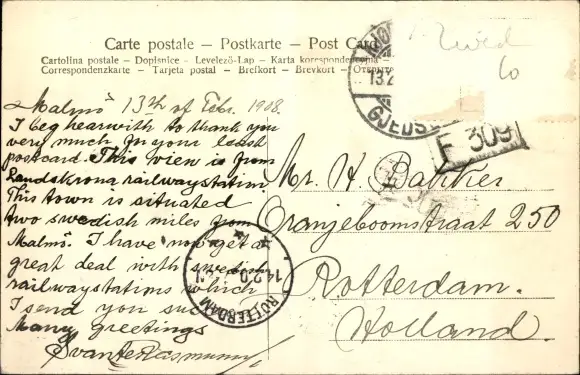 Carte postale – Postkarte – Post Card
Cartolina postale – Dopisnice – Levelező-Lap – Karta korespondencyjna –
Correspondenzkarte – Tarjeta postal – Brefkort – Brevkort –
GJEDS
F 309
Malmö 13th of Febr. 1908.
I beg hearwith to thank you
very much for your last
postcard. This view is from
Landskrona railwaystation
This town is situated
two swedish miles from
Malmö. I have now get a
great deal with swedish
railwaystations which
I send you
Many greetings
Svante Rasmussen
Mr. H. Bakker
Oranjeboomstraat 250
Rotterdam.
Holland.
ROTTERDAM
14.2.0